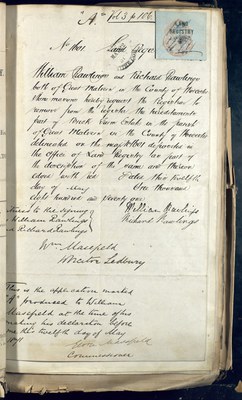 "A." Vol 3 p 106.
No 1601 Land Registry
LAND REGISTRY
William Rawlings and Richard Rawlings
both of Great Malvern in the County of Worcester
hereby request the Registrar to
remove from the Register the hereditaments
part of Estate in the parish
of Great Malvern in the County of Worcester
delineated on the map deposited in
the office of Land Registry as part of
the description of the same and
edged with red Dated this twelfth
day of May One thousand
eight hundred and seventy one
Witness to the signing William Rawlings
William Rawlings Richard Rawlings
and Richard Rawlings
Wm Masefield
Solicitor Ledbury
This is the application marked
"A" produced to William
Masefield at the time of his
making his declaration before
me this twelfth day of May
1871
Masefield
Commissioner